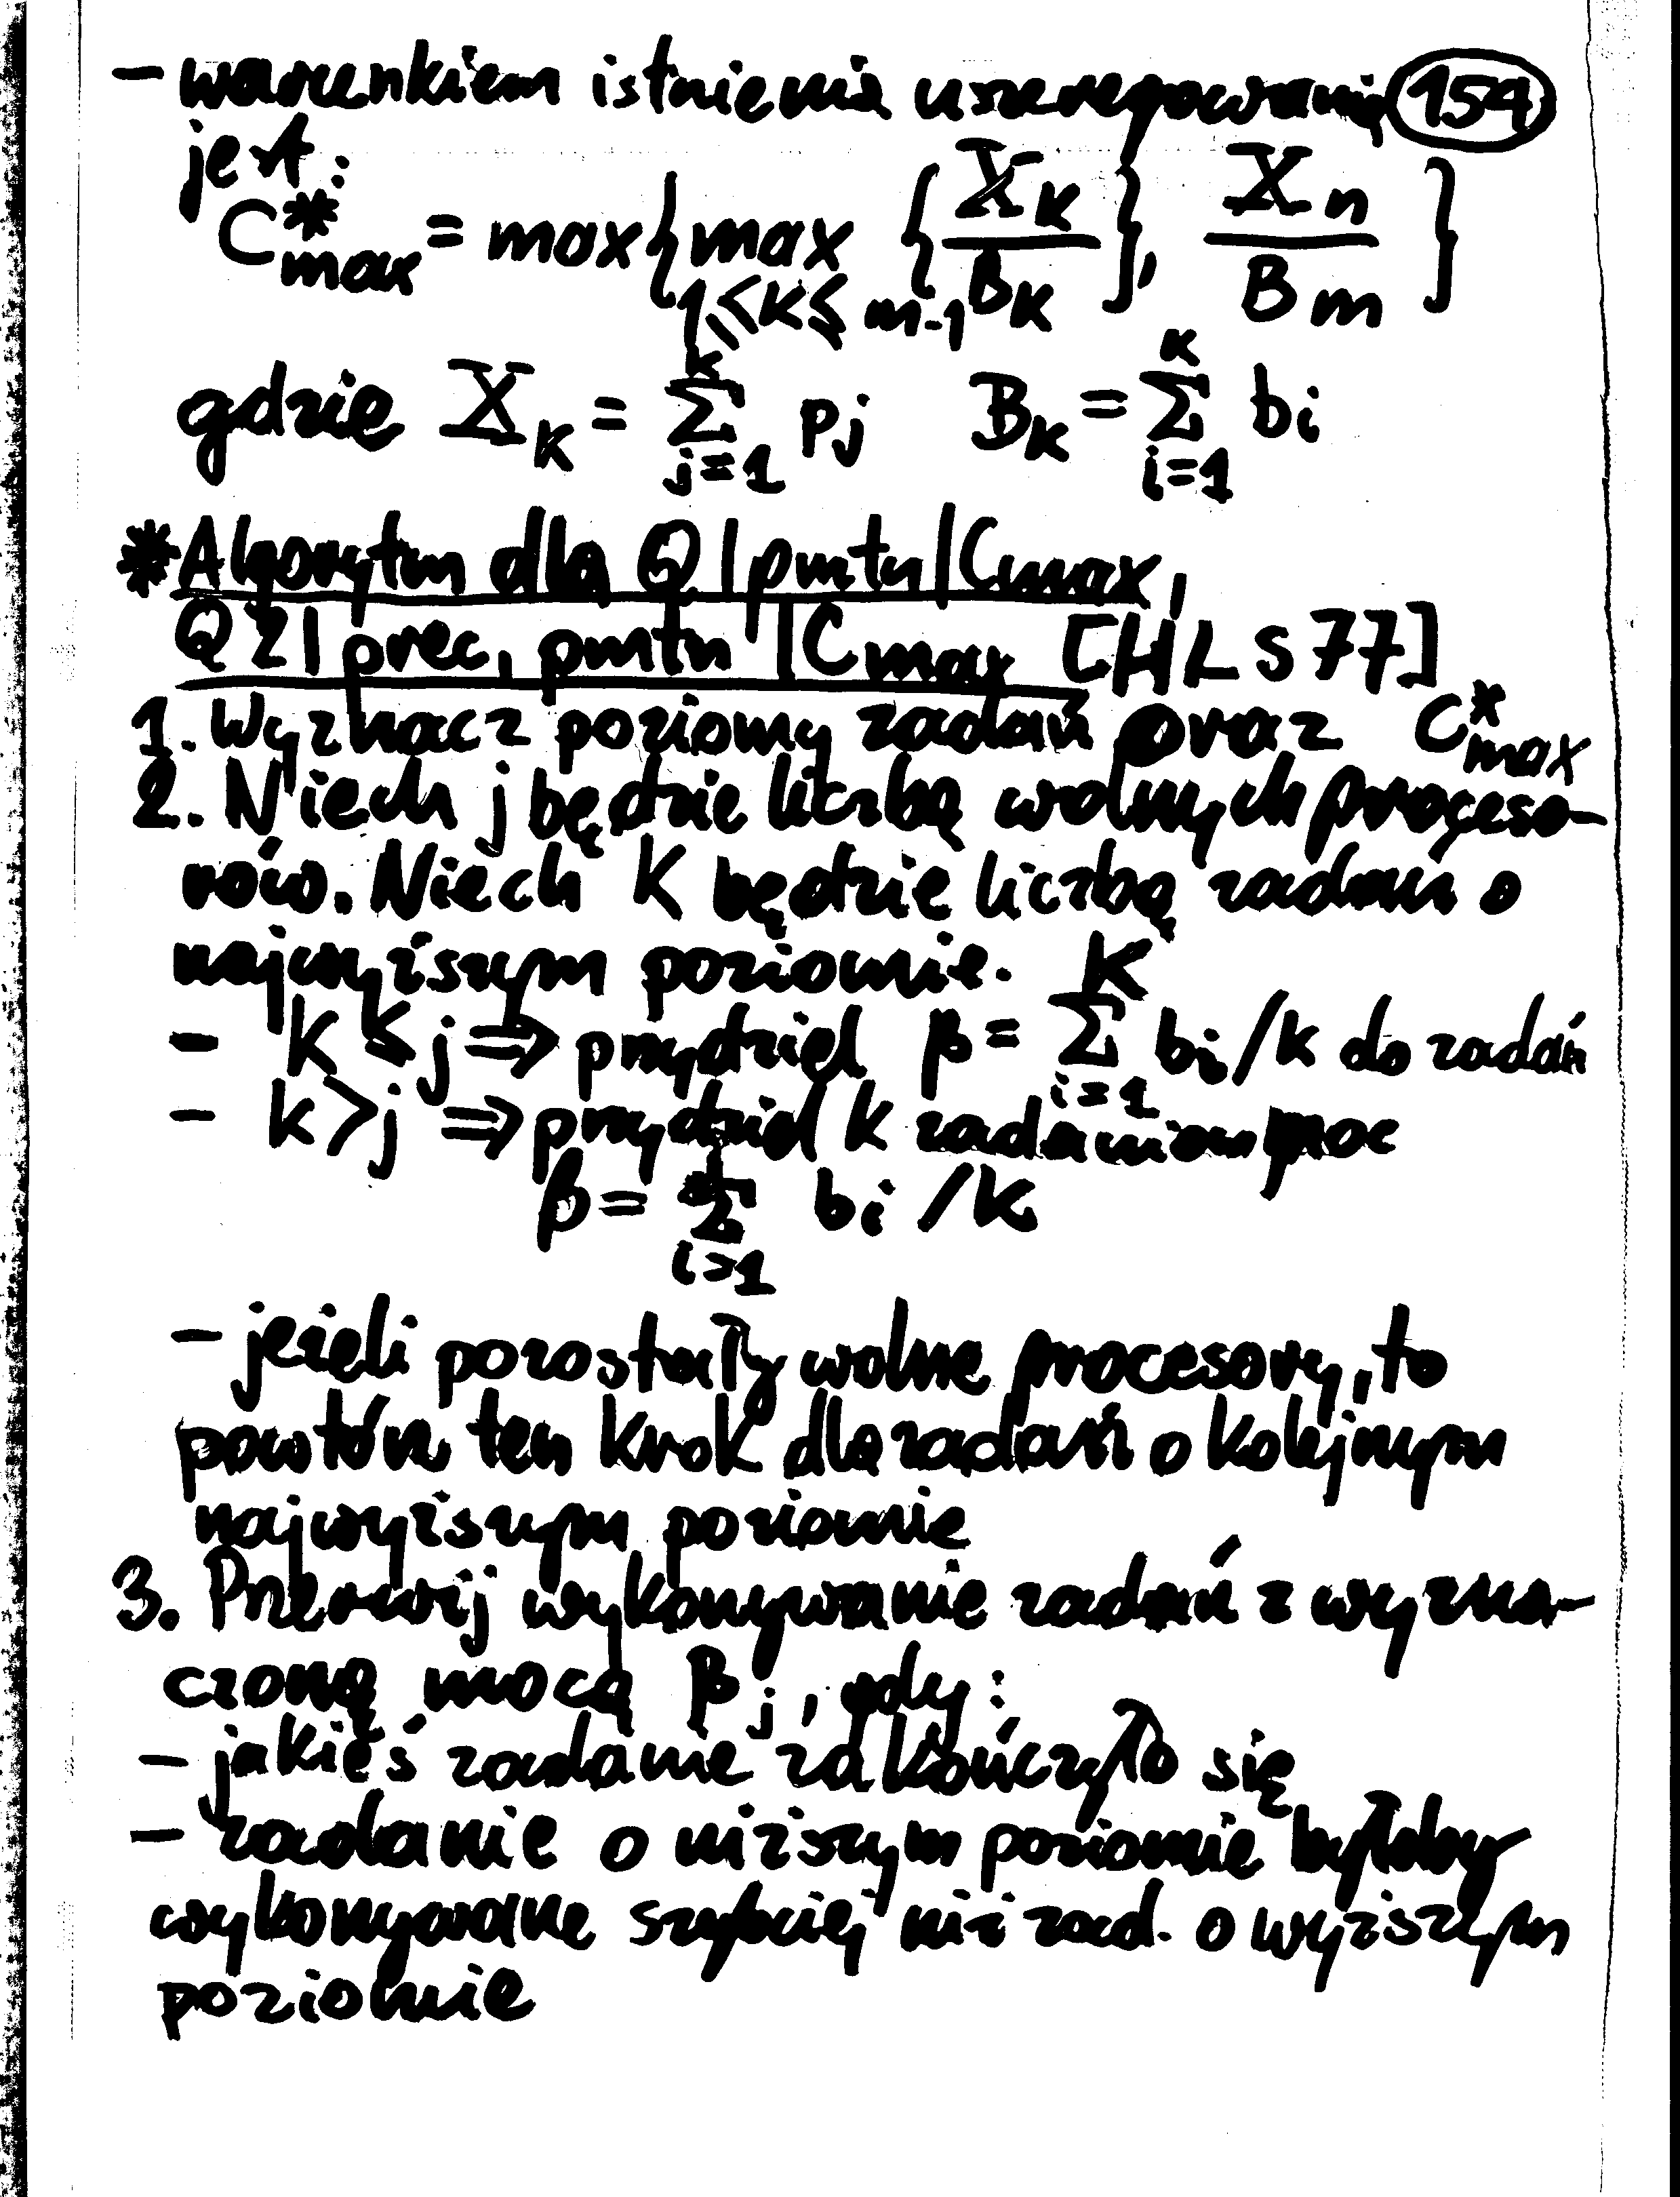 - warunkiem istnienia uszeregowania 154
jest:
C*max = max{ max 1≤k≤m-1 {Xk/Bk}, Xn/Bm }
gdzie Xk = Σ j=1 k pj Bk = Σ i=1 k bi
* Algorytm dla Q|pmtn|Cmax,
Q2|prec, pmtn|Cmax [HLS77]
1. Wyznacz poziomy zadań oraz C*max
2. Niech j będzie liczbą wolnych proceso-
rów. Niech K będzie liczbą zadań o
najwyższym poziomie.
- K ≤ j ⇒ przydziel β = Σ i=1 K bi/k do zadań
- k > j ⇒ przydziel k zadaniom moc
β = Σ i=1 j bi/k
- jeżeli pozostały wolne procesory, to
powtórz ten krok dla zadań o kolejnym
najwyższym poziomie
3. Przerwij wykonywanie zadań z wyzna-
czoną mocą βj, gdy:
- jakieś zadanie zakończyło się
- zadanie o niższym poziomie byłoby
wykonywane szybciej niż zad. o wyższym
poziomie